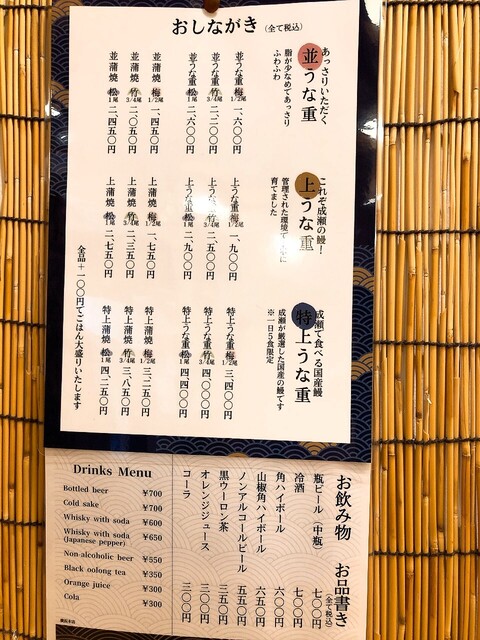 おしながき（全て税込）
あっさりいただく
並うな重
脂が少なめであっさり
ふわふわ
並うな重 梅1/2尾 一、六〇〇円
並うな重 竹3/4尾 二、二〇〇円
並うな重 松1尾 二、六〇〇円
並蒲焼 梅1/2尾 一、四五〇円
並蒲焼 竹3/4尾 二、〇五〇円
並蒲焼 松1尾 二、四五〇円
これぞ成瀬の鰻！
上うな重
管理された環境で
育てました
上うな重 梅1/2尾 一、九〇〇円
上うな重 竹3/4尾 二、五〇〇円
上うな重 松1尾 二、九〇〇円
上蒲焼 梅1/2尾 一、七五〇円
上蒲焼 竹3/4尾 二、三五〇円
上蒲焼 松1尾 二、七五〇円
成瀬で食べる国産鰻
特上うな重
成瀬が厳選した国産の鰻です
※一日５食限定
特上うな重 梅1/2尾 三、四〇〇円
特上うな重 竹3/4尾 四、〇〇〇円
特上うな重 松1尾 四、四〇〇円
特上蒲焼 梅1/2尾 三、二五〇円
特上蒲焼 竹3/4尾 三、八五〇円
特上蒲焼 松1尾 四、二五〇円
全品＋一〇〇円でごはん大盛りいたします
お飲み物 お品書き（全て税込）
瓶ビール（中瓶） 七〇〇円
冷酒 七〇〇円
角ハイボール 六〇〇円
山椒角ハイボール 六五〇円
ノンアルコールビール 五五〇円
黒ウーロン茶 三五〇円
オレンジジュース 三〇〇円
コーラ 三〇〇円
Drinks Menu
Bottled beer ¥700
Cold sake ¥700
Whisky with soda ¥600
Whisky with soda ¥650
(Japanese pepper)
Non-alcoholic beer ¥550
Black oolong tea ¥350
Orange juice ¥300
Cola ¥300